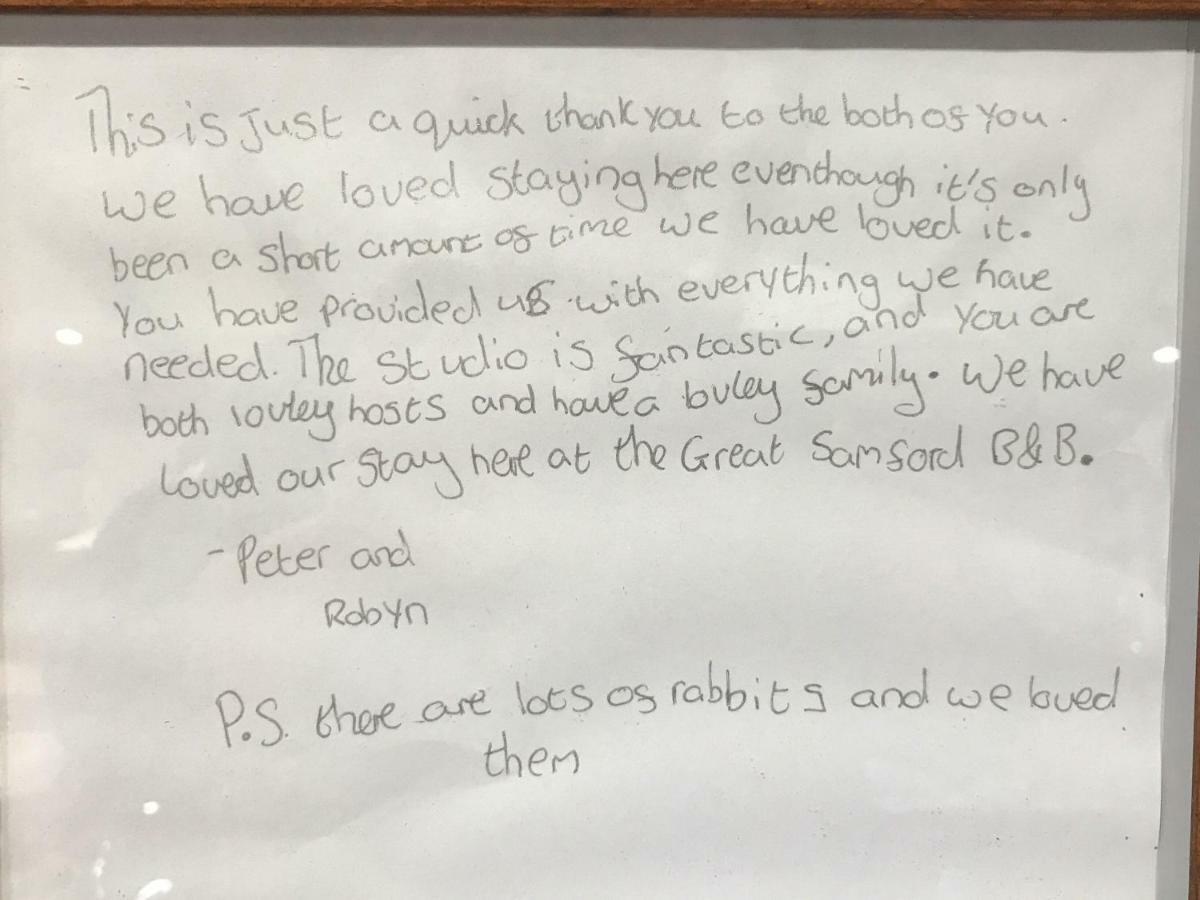 This is just a quick thank you to the both of you.
we have loved staying here eventhough it's only
been a short amount of time we have loved it.
You have provided us with everything we have
needed. The studio is fantastic, and you are
both lovley hosts and have a lovley family. We have
loved our stay here at the Great Samford B&B.
- Peter and
Robyn
P.S. there are lots of rabbits and we loved
them